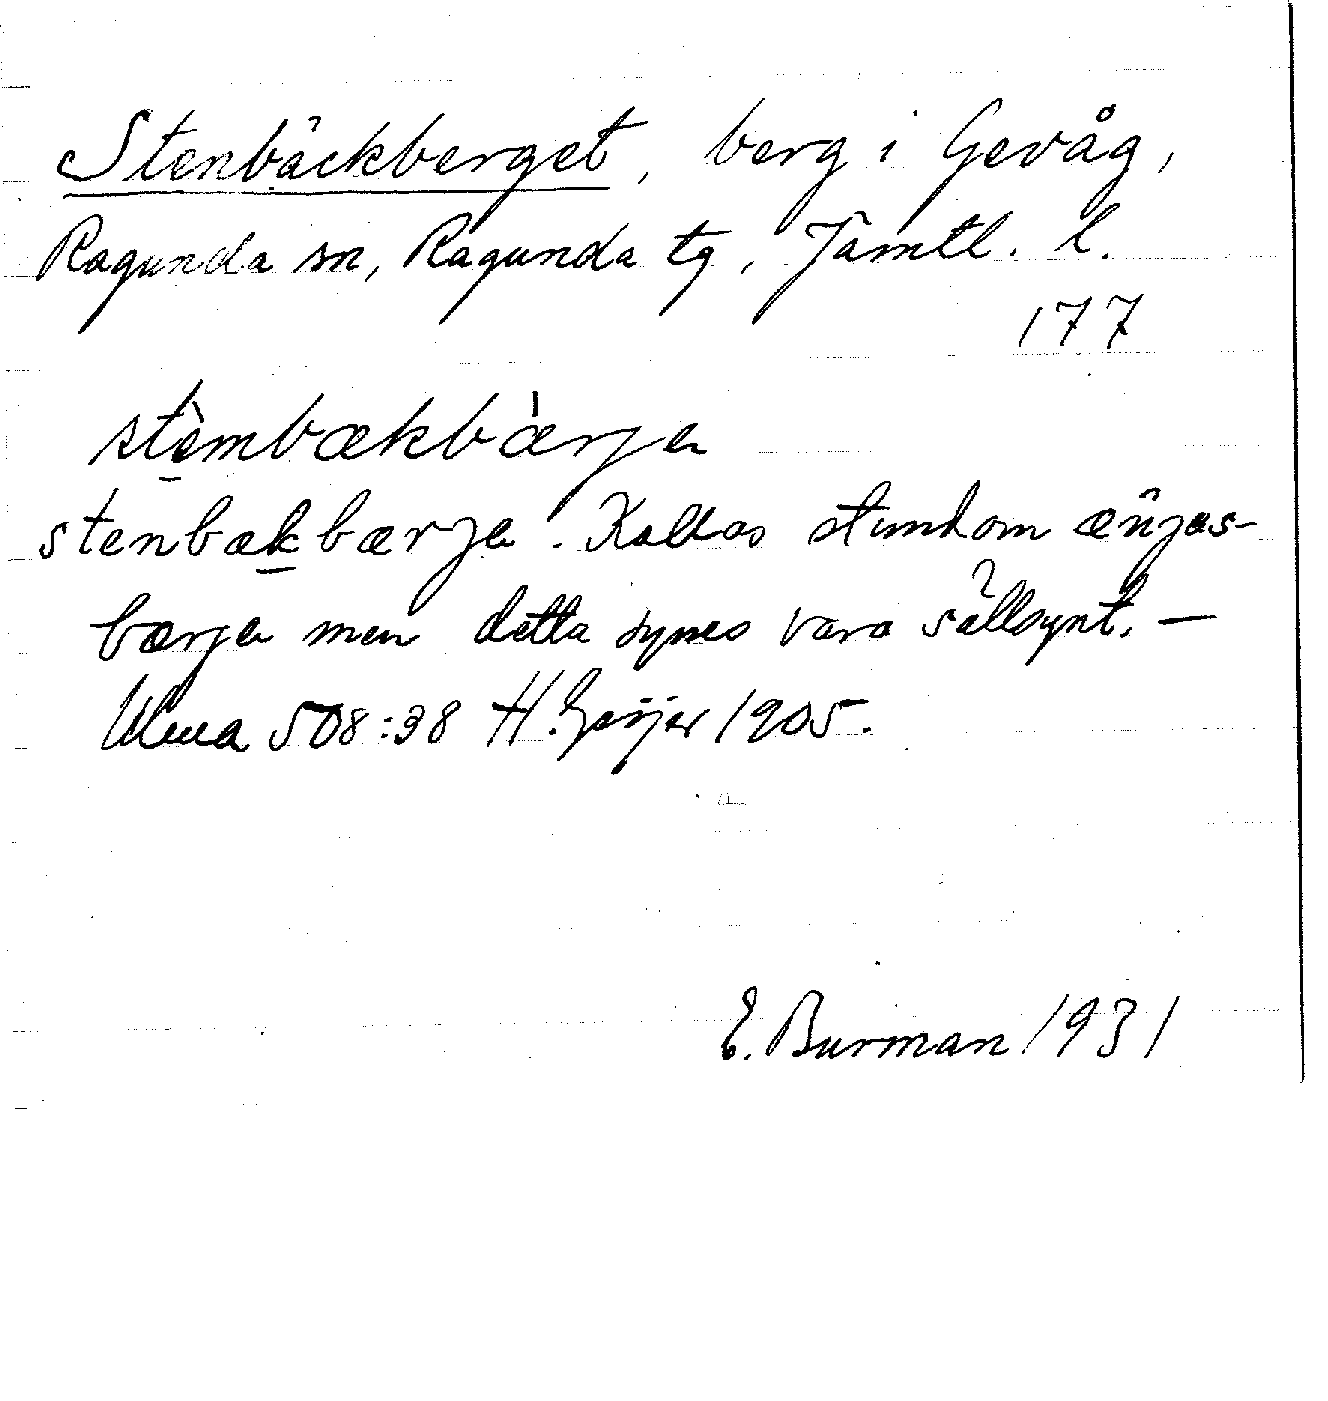 Stenbäckberget, berg i Gevåg,
Ragunda sn, Ragunda tg, Jämtl. l.
177
stèmbækbærje
stenbækbærje. Kallas stundom
bærje men detta synes vara sällsynt. —
Ulma 508:38 H. Geijer 1905.
E. Burman 1931